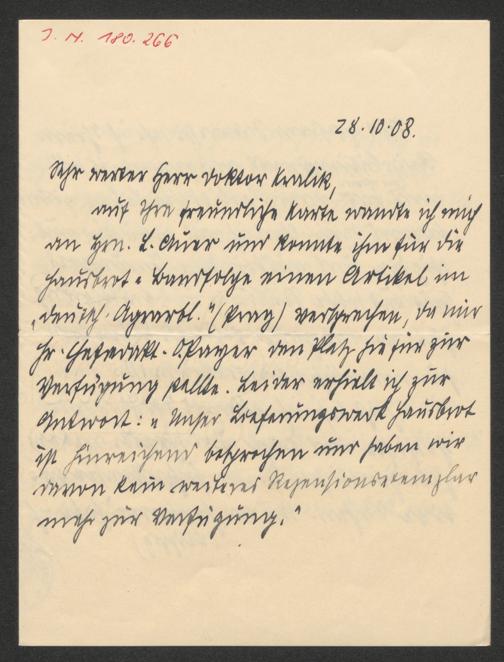 J. N. 180.266
28.10.08.
Sehr werter Herr Doktor Kralik,
auf Ihre freundliche Karte wandte ich mich
an Hrn. L. Auer und konnte ihm für die
Hausbrot-Bandfolge einen Artikel im
„Deutsch. Agrarbl." (Prag) versprechen, da mir
Hr. Chefredakt. den Platz hiefür zur
Verfügung stellte. Leider erhielt ich zur
Antwort: „Unser Lieferungswerk Hausbrot
ist hinreichend besprochen und haben wir
davon kein weiteres Rezensionsexemplar
mehr zur Verfügung."